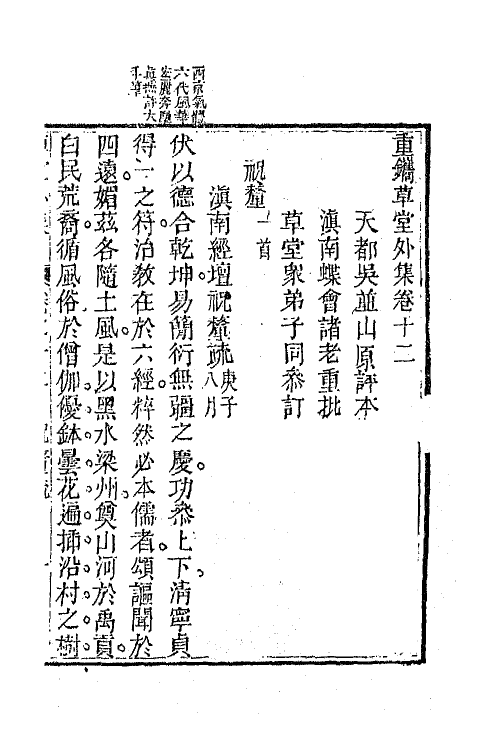 西京氣體
六代風華
宏麗奔歷
真燕許大
手筆
重鐫草堂外集卷十二
天都吳菫山原評本
滇南蝶會諸老重批
草堂衆弟子同叅訂
祝釐一首
滇南經壇祝釐疏庚子八月
伏以德合乾坤易簡衍無疆之慶功叅上下淸寧貞
得一之符治敎在於六經粹然必本儒者頌謳聞於
四遠媚茲各隨土風是以黑水梁州奠山河於禹貢
白民荒裔循風俗於僧伽優鉢曇花遍揷沿村之樹